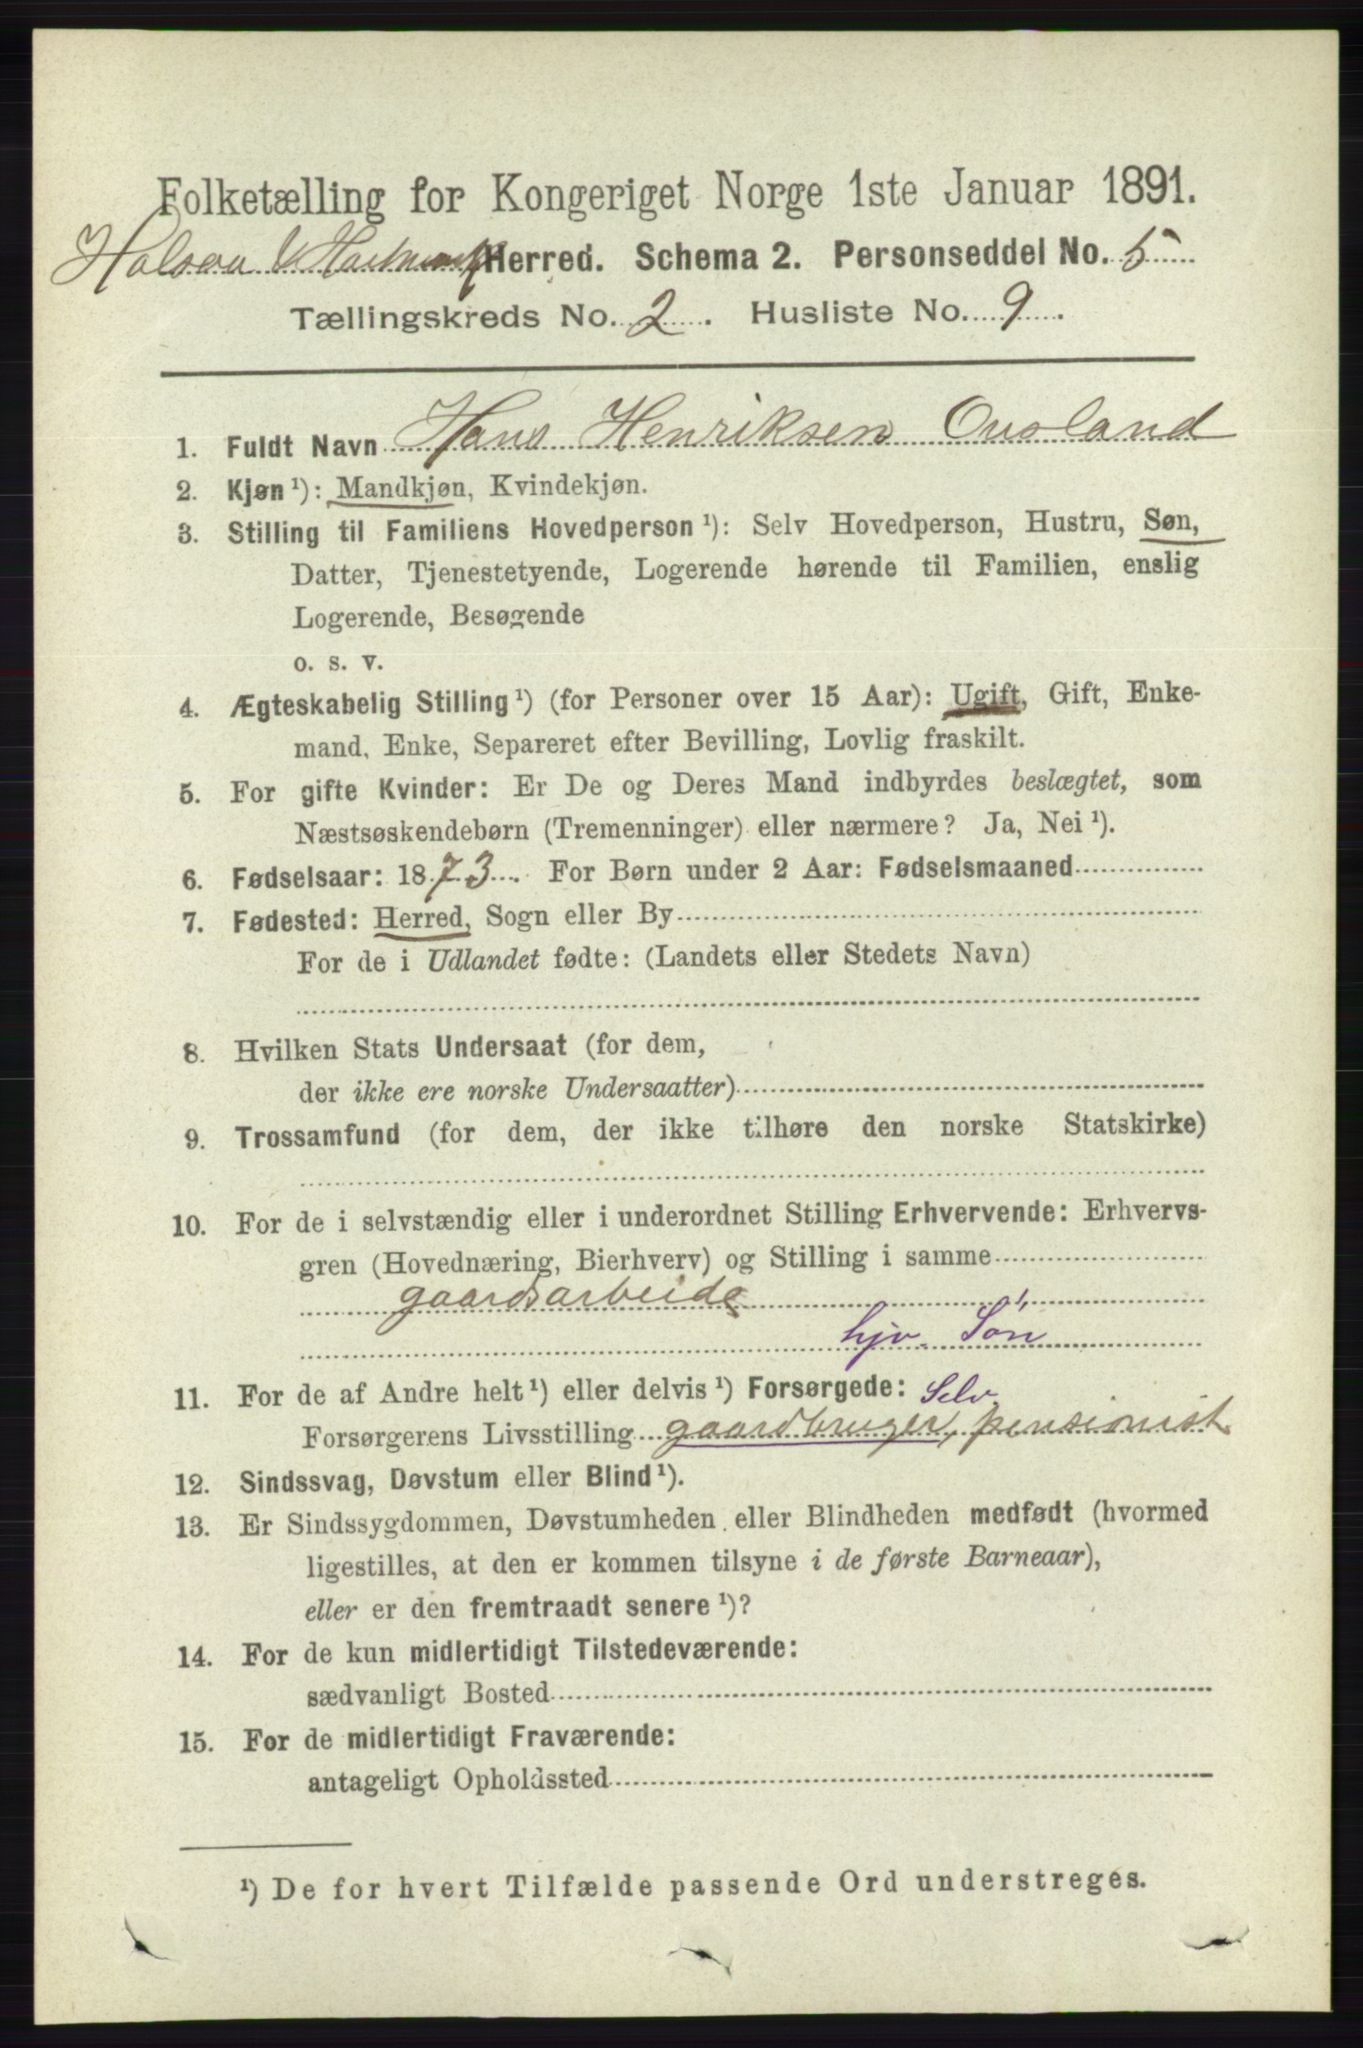 Folketælling for Kongeriget Norge 1ste Januar 1891.
Halsaa & Harkmark Herred. Schema 2. Personseddel No. 5
Tællingskreds No. 2. Husliste No. 9.
1. Fuldt Navn Hans Henriksen Ousland
2. Kjøn ¹): Mandkjøn, Kvindekjøn.
3. Stilling til Familiens Hovedperson ¹): Selv Hovedperson, Hustru, Søn,
Datter, Tjenestetyende, Logerende hørende til Familien, enslig
Logerende, Besøgende
o. s. v.
4. Ægteskabelig Stilling ¹) (for Personer over 15 Aar): Ugift, Gift, Enke-
mand, Enke, Separeret efter Bevilling, Lovlig fraskilt.
5. For gifte Kvinder: Er De og Deres Mand indbyrdes beslægtet, som
Næstsøskendebørn (Tremenninger) eller nærmere? Ja, Nei ¹).
6. Fødselsaar: 1873. For Børn under 2 Aar: Fødselsmaaned
7. Fødested: Herred, Sogn eller By
For de i Udlandet fødte: (Landets eller Stedets Navn)
8. Hvilken Stats Undersaat (for dem,
der ikke ere norske Undersaatter)
9. Trossamfund (for dem, der ikke tilhøre den norske Statskirke)
10. For de i selvstændig eller i underordnet Stilling Erhvervende: Erhvervs-
gren (Hovednæring, Bierhverv) og Stilling i samme
gaardsarbeide
hjv. Søn
11. For de af Andre helt ¹) eller delvis ¹) Forsørgede: Selv
Forsørgerens Livsstilling gaardbruger, pensionist
12. Sindssvag, Døvstum eller Blind ¹).
13. Er Sindssygdommen, Døvstumheden eller Blindheden medfødt (hvormed
ligestilles, at den er kommen tilsyne i de første Barneaar),
eller er den fremtraadt senere ¹)?
14. For de kun midlertidigt Tilstedeværende:
sædvanligt Bosted
15. For de midlertidigt Fraværende:
antageligt Opholdssted
¹) De for hvert Tilfælde passende Ord understreges.